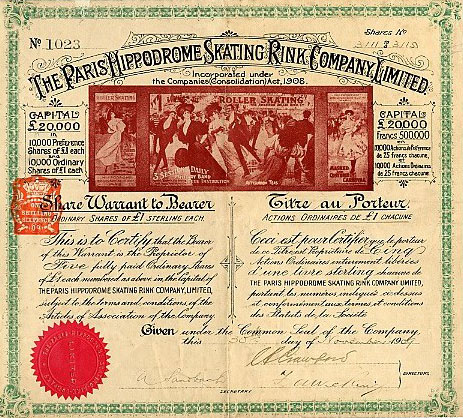 Shares No
No 1023
3111 @ 3115
THE PARIS HIPPODROME SKATING RINK COMPANY, LIMITED.
Incorporated under
the Companies (Consolidation) Act, 1908.
CAPITAL
£20,000
in
10,000 Preference
Shares of £1 each
and
10,000 Ordinary
Shares of £1 each
ROLLER SKATING
ROLLER SKATING
DAILY
CAPITAL
£.20,000
Francs 500,000
en
10,000 Actions de Préférence
de 25 francs chacune,
et
10,000 Actions Ordinaires
de 25 francs chacune
ONE
SHILLING
Share Warrant to Bearer
ORDINARY SHARES OF £1 STERLING EACH.
Titre au Porteur.
ACTIONS ORDINAIRES DE £1 CHACUNE
This is to Certify that the Bearer
of this Warrant is the Proprietor of
Five fully paid Ordinary Shares
of £1 each numbered as above in the Capital of
THE PARIS HIPPODROME SKATING RINK COMPANY, LIMITED,
subject to the terms and conditions of the
Articles of Association of the Company.
Ceci est pour Certifier que le porteur
de ce Titre est Propriétaire de Cinq
Actions Ordinaires entièrement libérées
d'une livre sterling chacune de
THE PARIS HIPPODROME SKATING RINK COMPANY, LIMITED,
portant les numéros indiqués ci-dessus
et conformément aux termes et conditions
des Statuts de la Société
Given under the Common Seal of the Company,
this day of November 1909
DIRECTORS.
SECRETARY